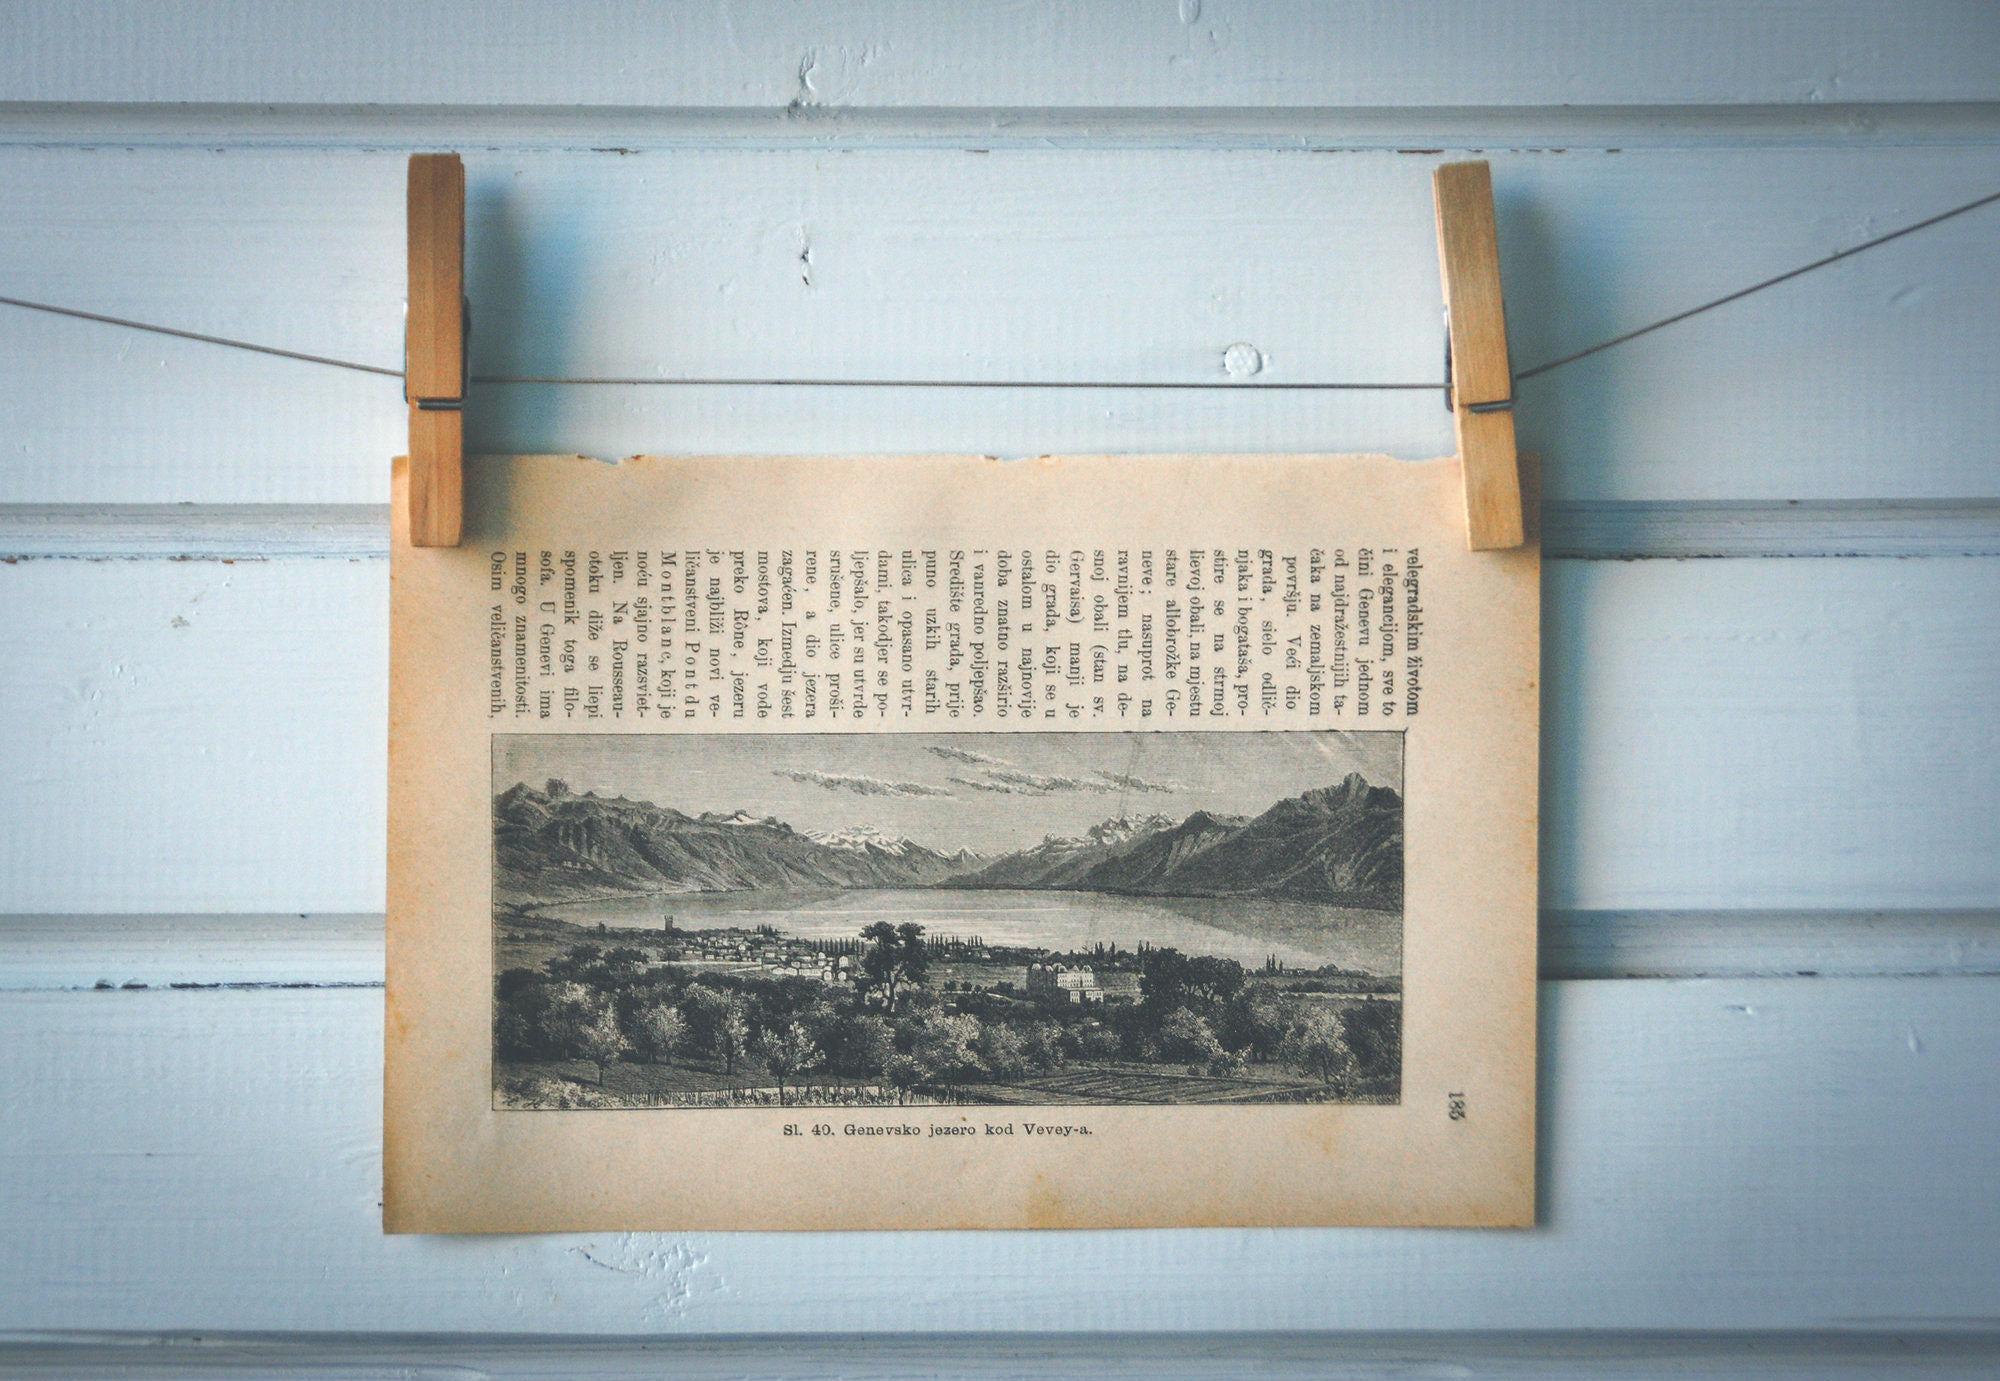 185
velegradskim životom
i elegancijom, sve to
čini Genevu jednom
od najdražestnijih ta-
čaka na zemaljskom
površju. Veći dio
grada, sielo odlič-
njaka i bogataša, pro-
stire se na strmoj
lievoj obali, na mjestu
stare allobrožke Ge-
neve; nasuprot na
ravnijem tlu, na de-
snoj obali (stan sv.
Gervaisa) manji je
dio grada, koji se u
ostalom u najnovije
doba znatno razširio
i vanredno poljepšao.
Središte grada, prije
puno uzkih starih
ulica i opasano utvr-
dami, takodjer se po-
ljepšalo, jer su utvrde
srušene, ulice proši-
rene, a dio jezera
zagaćen. Izmedju šest
mostova, koji vode
preko Rône, jezeru
je najbliži novi ve-
ličanstveni Pont du
Montblanc, koji je
noću sjajno razsviet-
ljen. Na Rousseau-
otoku diže se liepi
spomenik toga filo-
sofa. U Genevi ima
mnogo znamenitosti.
Osim veličanstvenih,
Sl. 40. Genevsko jezero kod Vevey-a.